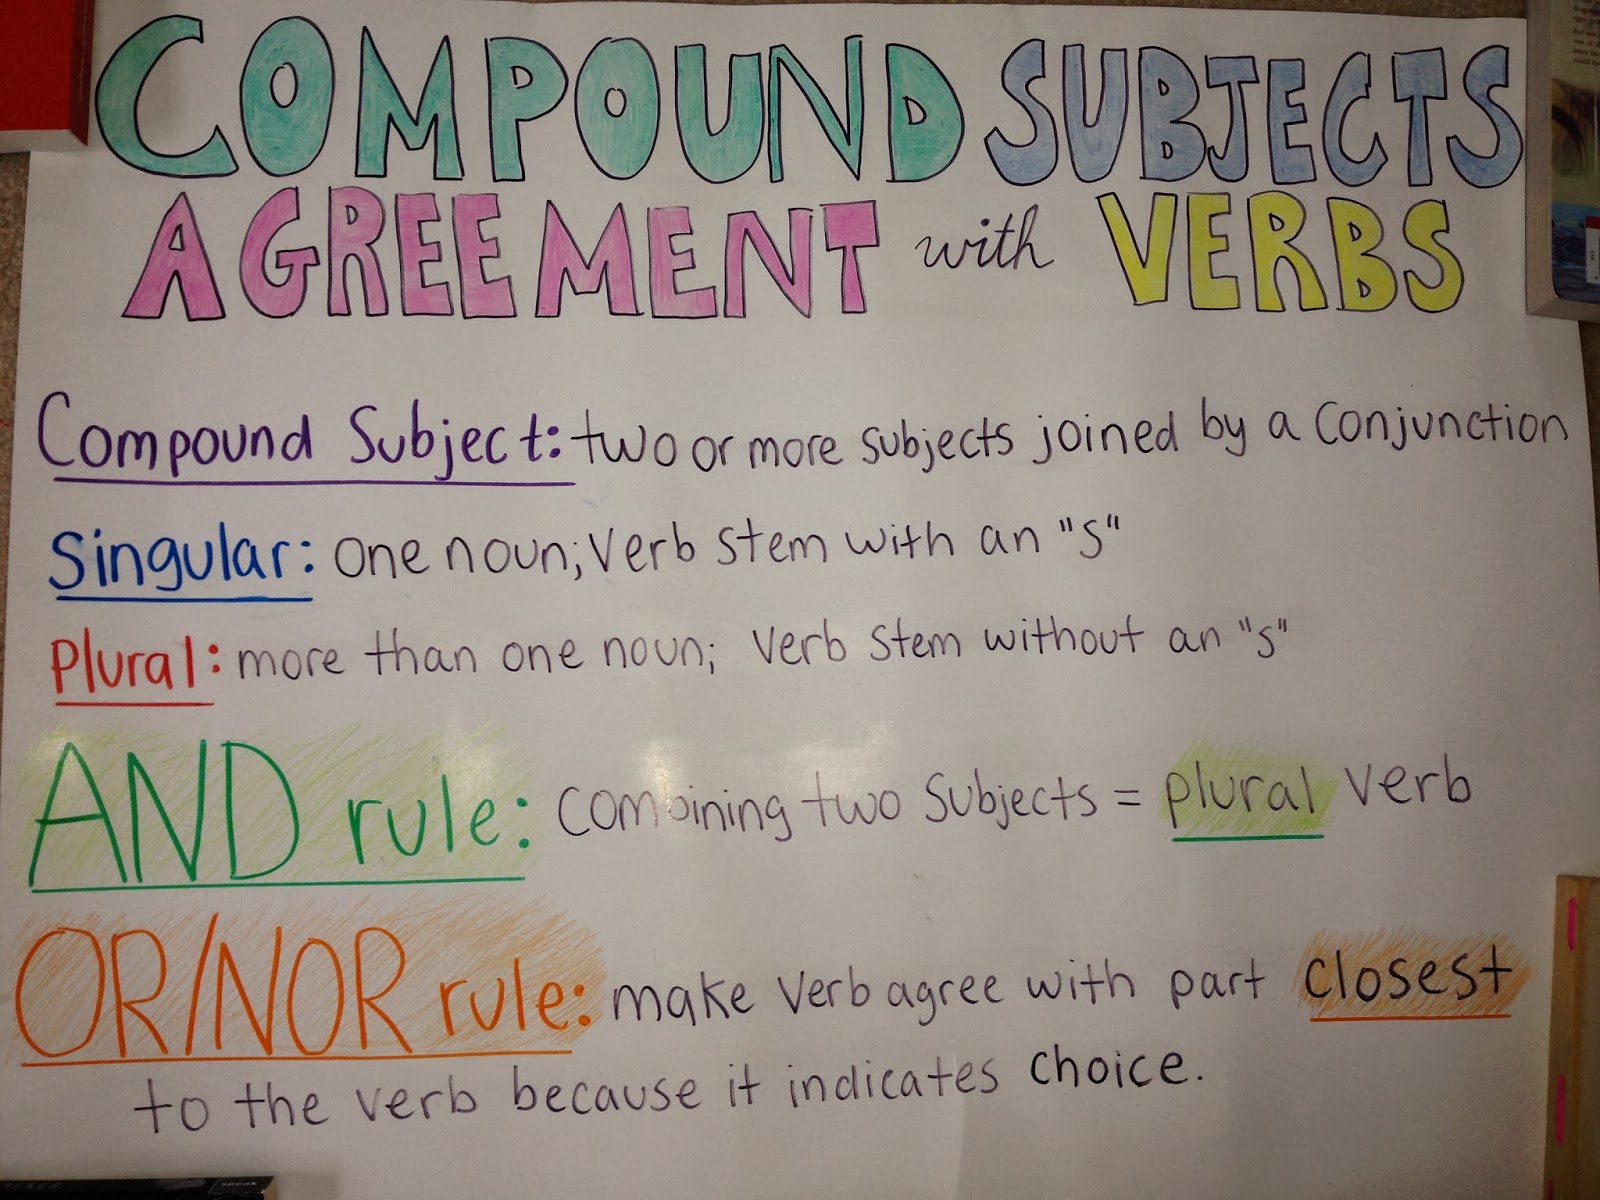 COMPOUND SUBJECTS
AGREEMENT with VERBS
Compound Subject: two or more subjects joined by a conjunction
Singular: one noun; verb stem with an "s"
Plural: more than one noun; verb stem without an "s"
AND rule: combining two subjects = plural verb
OR/NOR rule: make verb agree with part closest
to the verb because it indicates choice.
speak